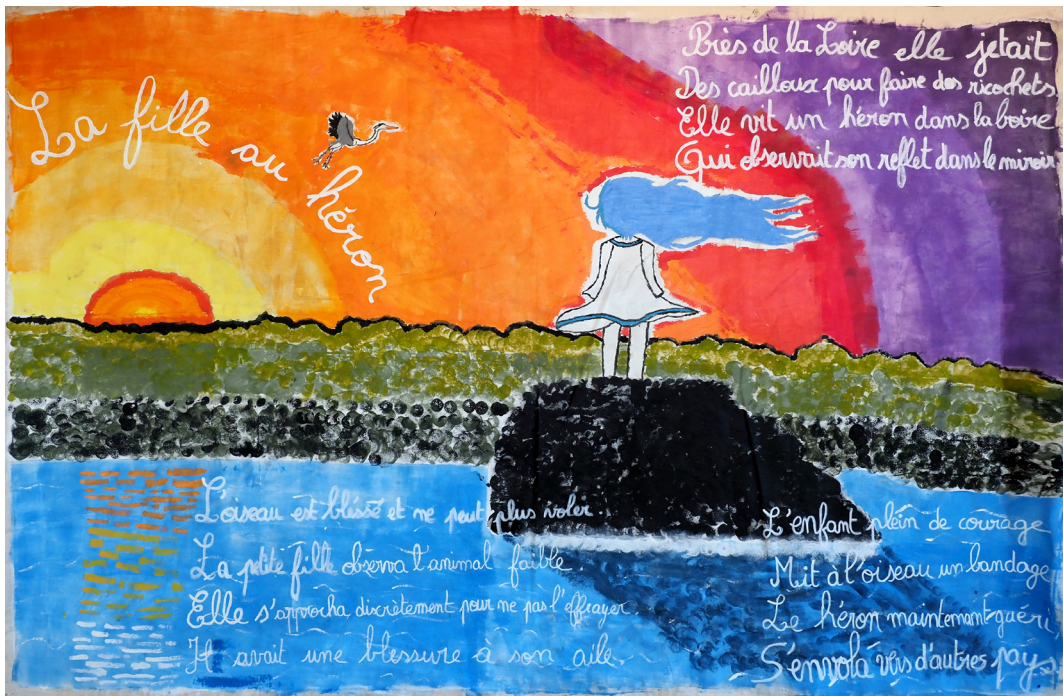 La fille au héron
Près de la Loire elle jetait
Des cailloux pour faire des ricochets
Elle vit un héron dans la boire
Qui observait son reflet dans le miroir
L'oiseau est bléssé et ne peut plus voler.
La petite fille observa l'animal faible.
Elle s'approcha discrètement pour ne pas l'effrayer.
Il avait une blessure à son aile.
L'enfant plein de courage
Mit à l'oiseau un bandage
Le héron maintenant guéri
S'envola vers d'autres pays.